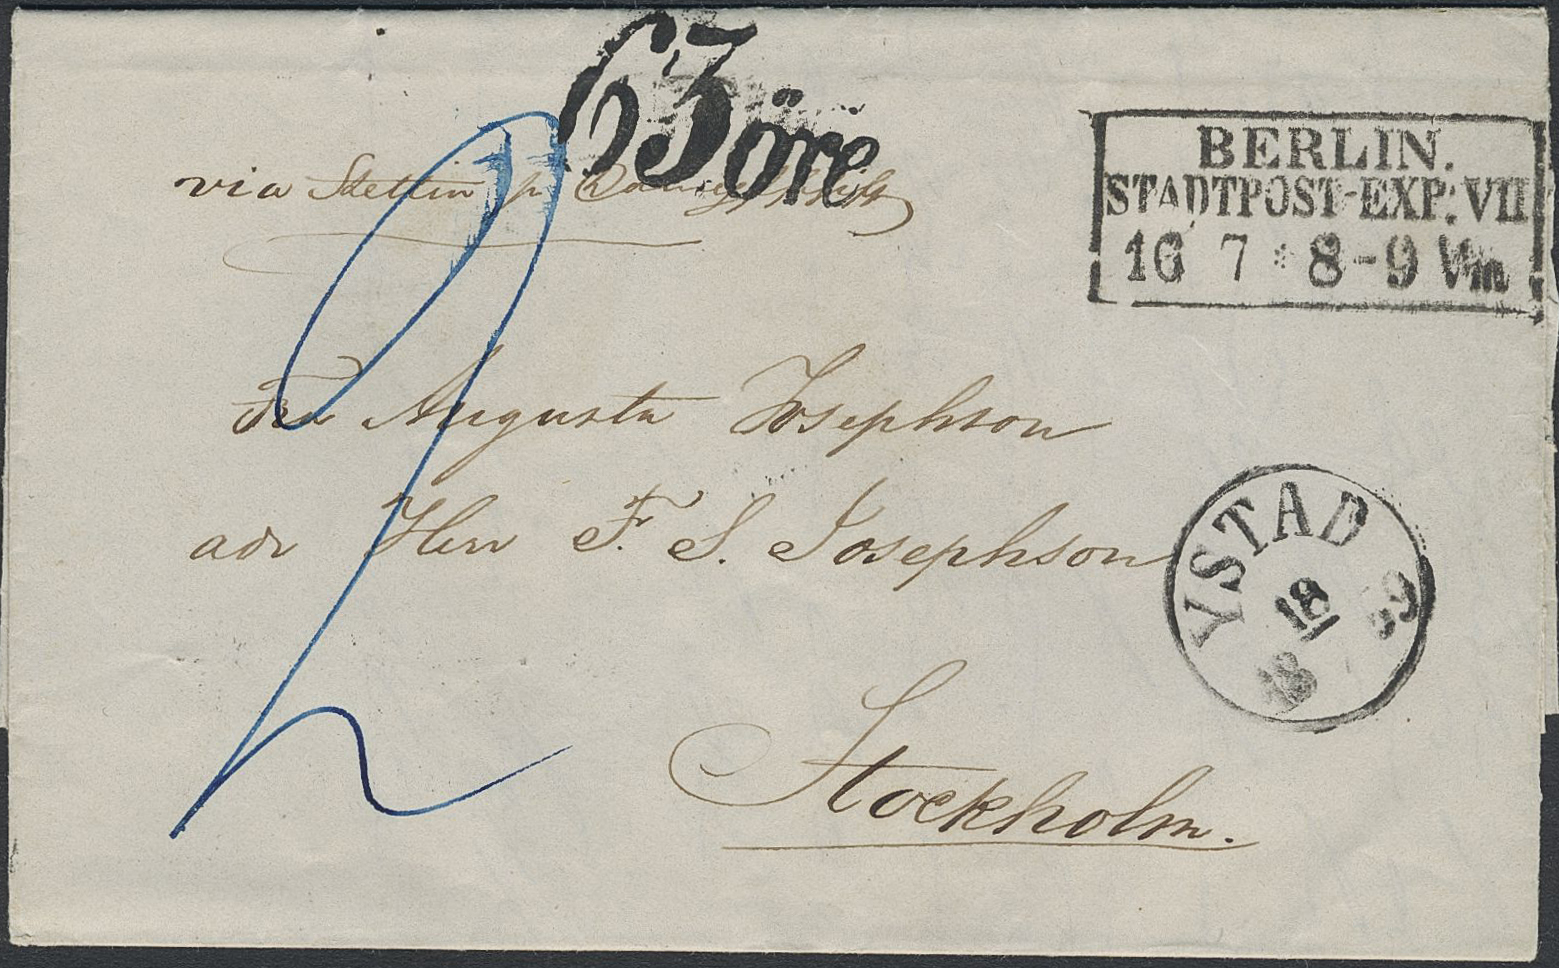 63 öre
via Stettin pr Dampfschiff
BERLIN.
STADTPOST-EXP: VII
16 7 * 8-9 Vm
Fru Augusta Josephson
adr Herr F. S. Josephson
YSTAD
18
18 59
Stockholm.
2